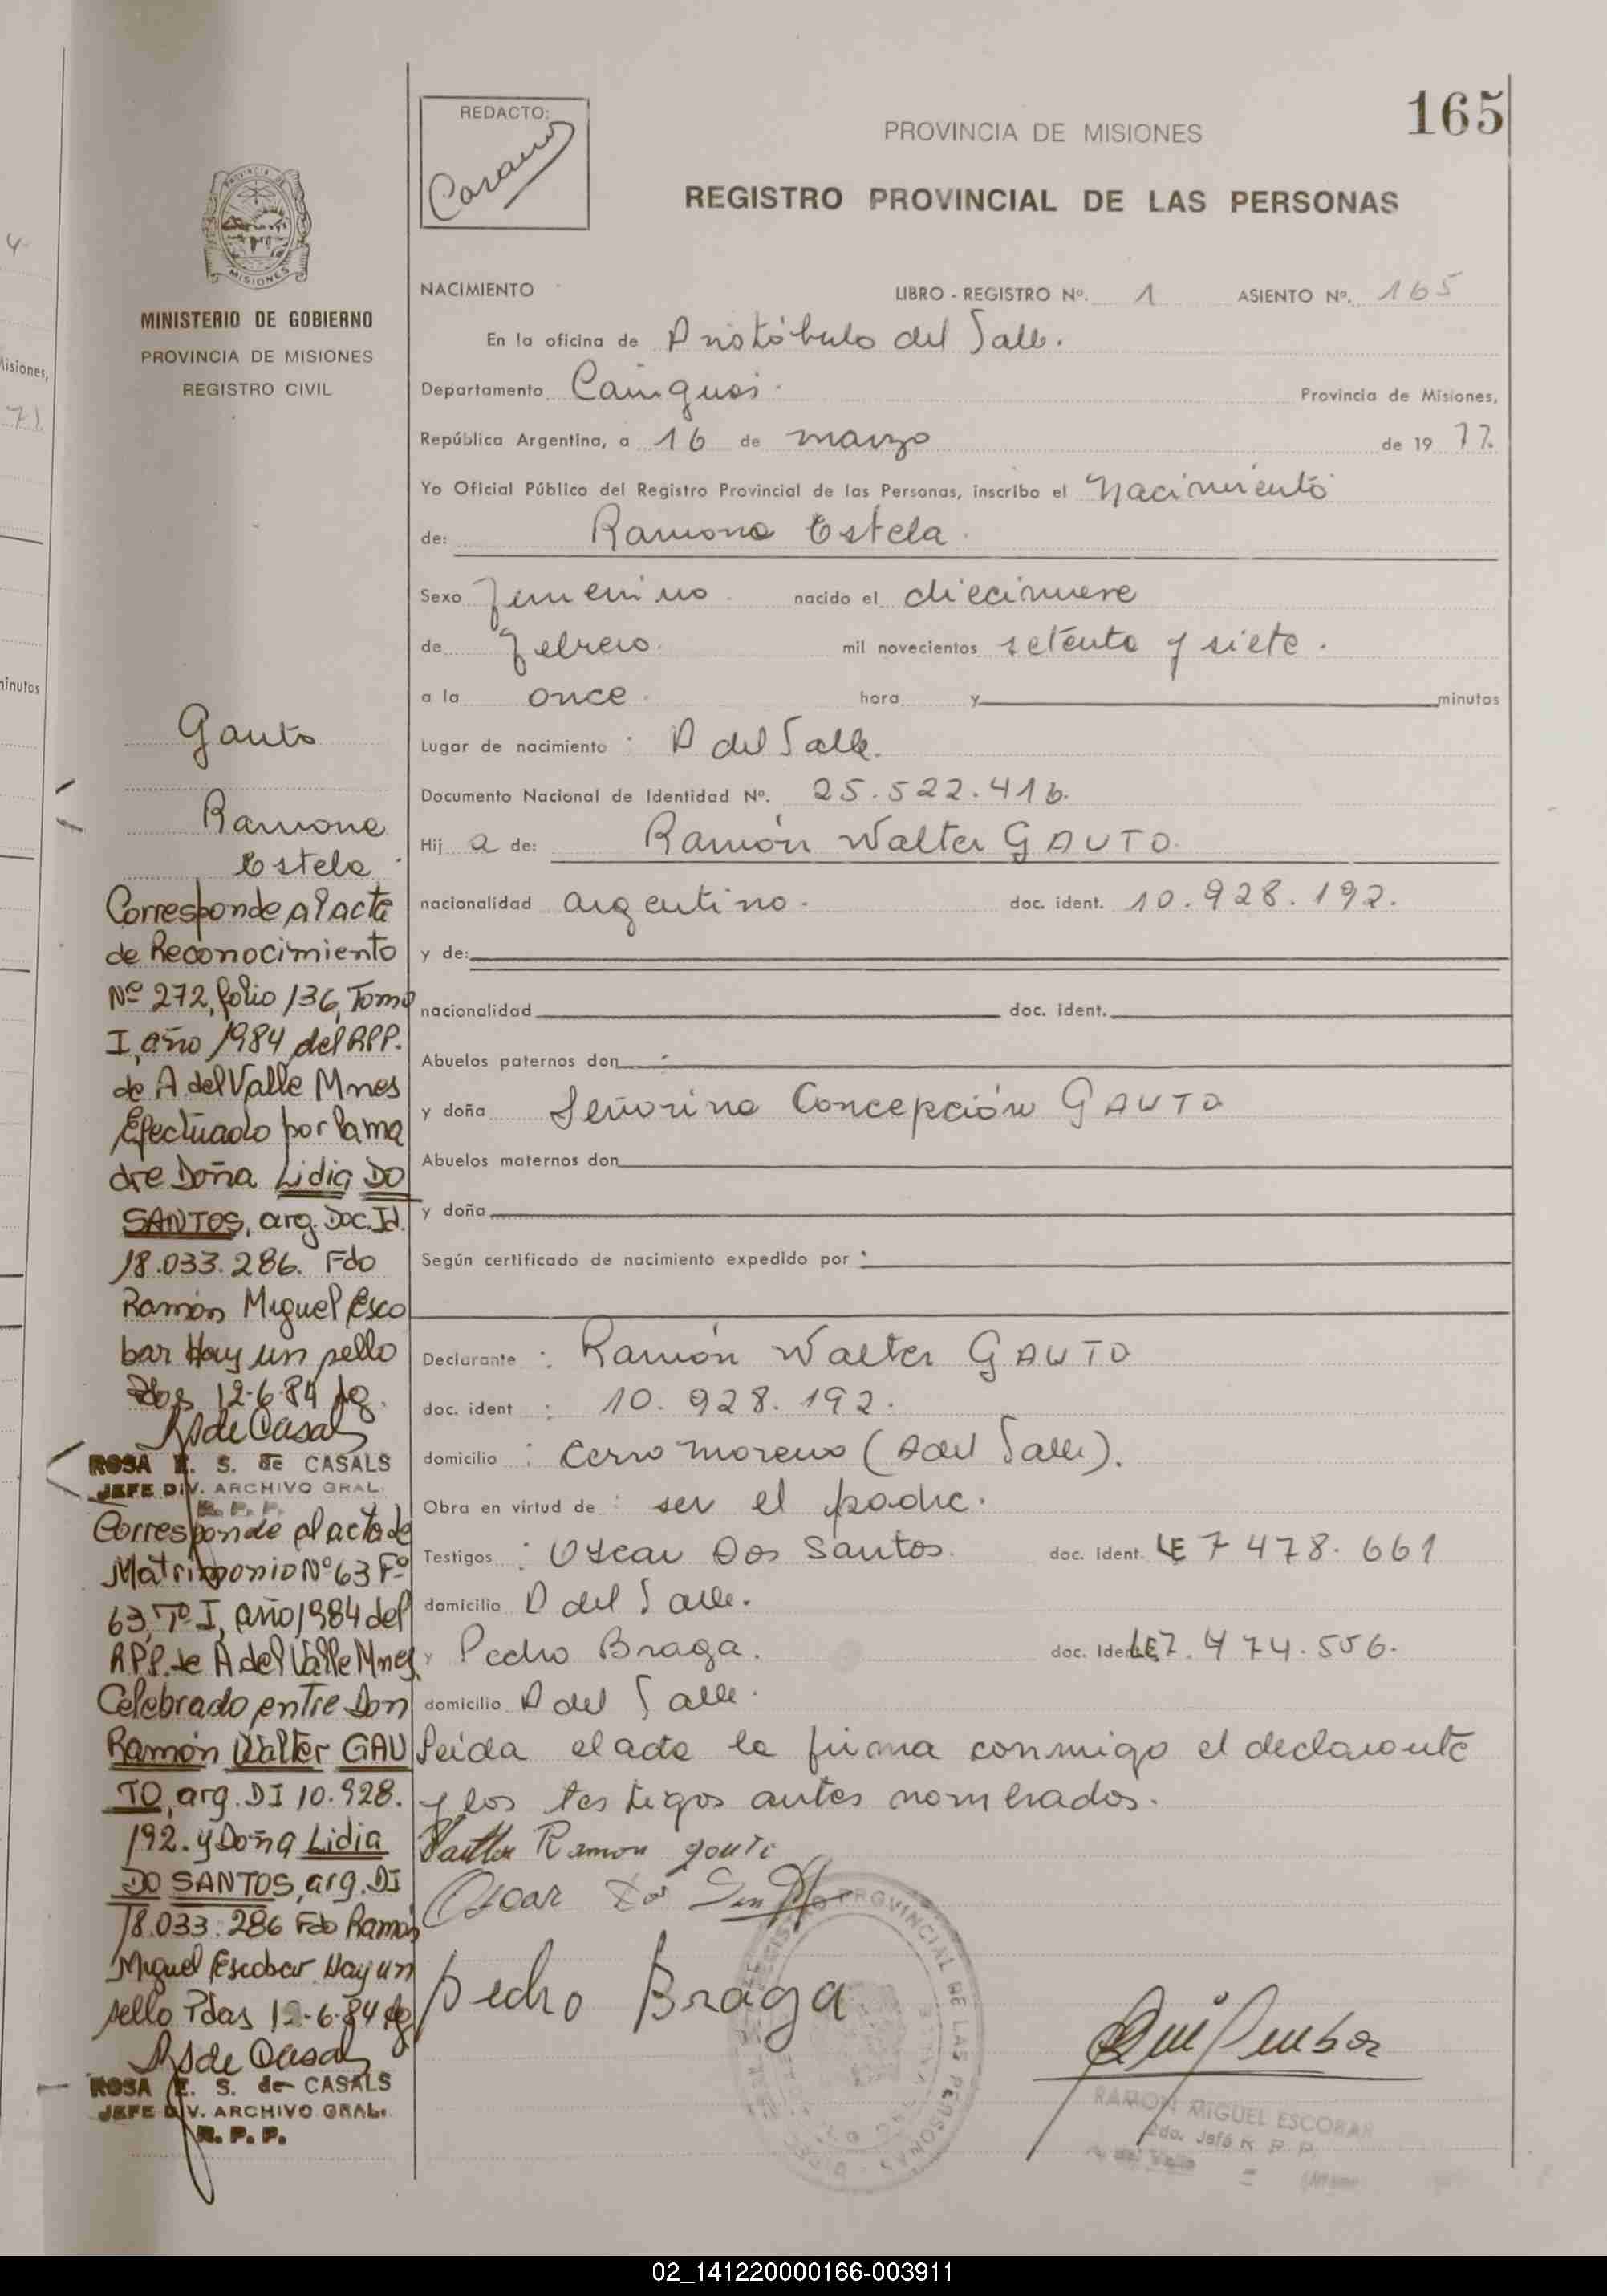 165
REDACTO:
PROVINCIA DE MISIONES
REGISTRO PROVINCIAL DE LAS PERSONAS
MISIONES
MINISTERIO DE GOBIERNO
PROVINCIA DE MISIONES
REGISTRO CIVIL
NACIMIENTO LIBRO - REGISTRO Nº. 1 ASIENTO Nº. 165
En la oficina de Aristóbulo del Valle.
Departamento Cainguas. Provincia de Misiones,
República Argentina, a 16 de marzo de 19 77.
Yo Oficial Público del Registro Provincial de las Personas, inscribo el Nacimiento
de: Ramona Estela.
Sexo femenino. nacido el diecinueve
de febrero. mil novecientos setenta y siete.
a la once. hora y minutos
Lugar de nacimiento : A del Valle.
Documento Nacional de Identidad Nº. 25.522.416.
Hij a de: Ramón Walter GAUTO.
nacionalidad argentino. doc. ident. 10.928.192.
y de:
nacionalidad doc. ident.
Abuelos paternos don
y doña Señorina Concepción GAUTO
Abuelos maternos don
y doña
Según certificado de nacimiento expedido por :
Declarante : Ramón Walter GAUTO
doc. ident : 10.928.192.
domicilio : Cerro Moreno (A del Valle).
Obra en virtud de : ser el padre.
Testigos : Oscar Dos Santos. doc. ident. LE 7 478.661
domicilio A del Valle.
y Pedro Braga. doc. ident. LE7.474.556.
domicilio A del Valle.
Leída el acta la firma conmigo el declarante
y los testigos antes nombrados.
Walter Ramon gouto
Oscar Dos
Pedro Braga
RAMON MIGUEL ESCOBAR
2do. Jefe R. P. P.
A. del Valle
Gauto
Ramona
Estela
Corresponde al acta
de Reconocimiento
Nº 272, folio 136, Tomo
I, año 1984 del RPP.
de A del Valle Mnes
Efectuado por la ma
dre Doña Lidia DO
SANTOS, arg. Doc. Id.
18.033.286. Fdo
Ramón Miguel Esco
bar Hay un sello
Pdas 12-6-84
RS de Casals
ROSA E. S. de CASALS
JEFE DIV. ARCHIVO GRAL.
R. P. P.
Corresponde al acta de
Matrimonio Nº 63 Fº
63, Tº I, año 1984 del
RPP. de A del Valle Mnes,
Celebrado entre Don
Ramón Walter GAU
TO, arg. DI 10.928.
192. y Doña Lidia
DO SANTOS, arg. DI
18.033.286 Fdo Ramón
Miguel Escobar. Hay un
sello Pdas 12-6-84
RS de Casals
ROSA E. S. de CASALS
JEFE DIV. ARCHIVO GRAL.
R. P. P.
Misiones,
minutos
02_141220000166-003911